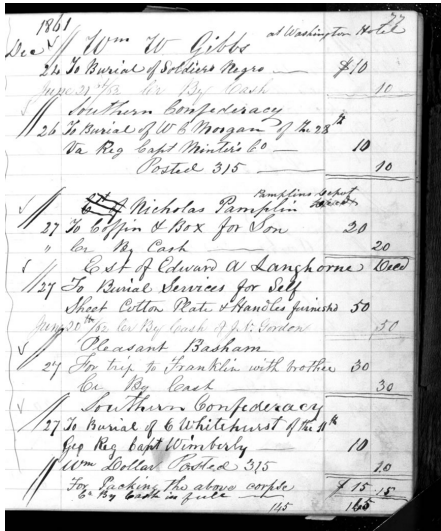 77
1861
at Washington Hotel
Dec Wm W Gibbs
24 To Burial of Soldiers Negro — $10
June 21 /62 Cr By Cash 10
Southern Confederacy
26 To Burial of W C Morgan of the 28th
Va Reg Capt Minters Co — 10
Posted 315 — 10
Pamplins Depot
Nicholas Pamplin
27 To Coffin & Box for Son 20
" Cr By Cash — 20
Est of Edward A Langhorne Decd
27 To Burial Services for Self
Sheet Cotton Plate & Handles furnishd 50
June 20th /62 Cr By Cash of J. Gordon 50
Pleasant Basham
27 For trip to Franklin with brother 30
Cr By Cash — 30
Southern Confederacy
27 To Burial of C Whitehurst of the 11th
Geo Reg Capt Wimberly — 10
Wm Dollar Posted 315 10
For Packing the above corpse $15
Cr By Cash in full — 15
165 165